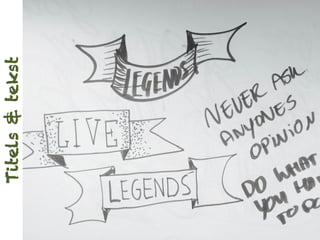 Titels & tekst
LEGENDS
LIVE
LEGENDS
NEVER ASK
ANYONES
OPINION
DO WHAT
YOU HA
TO DO